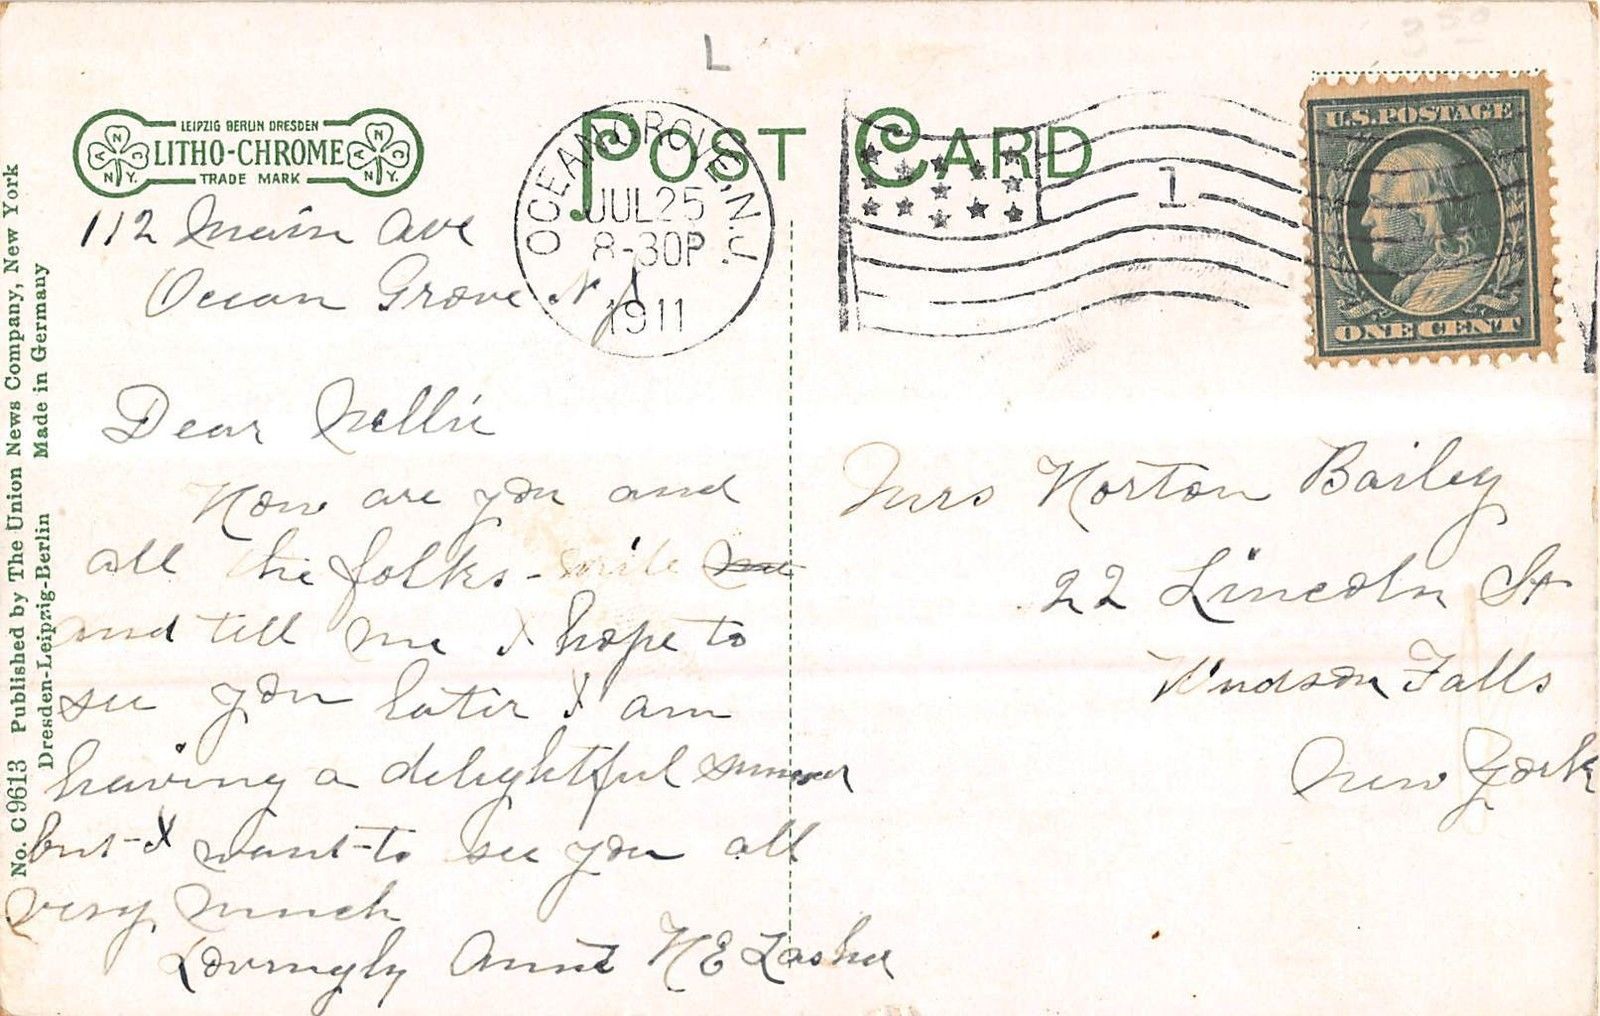 LEIPZIG BERLIN DRESDEN
LITHO-CHROME
TRADE MARK
ANC N.Y.
ANC N.Y.
POST CARD
OCEAN GROVE, N.J.
JUL 25
8-30P
1911
1
U.S. POSTAGE
ONE CENT
L
112 Main Ave
Ocean Grove N J
Dear Nellie
How are you and
all the folks - write
and tell me I hope to
see you later I am
having a delightful summer
but - I want - to see you all
very much
Lovingly Aunt H E Lasher
Mrs Norton Bailey
22 Lincoln St
Hudson Falls
New York
No. C9613 Published by The Union News Company, New York
Dresden-Leipzig-Berlin Made in Germany